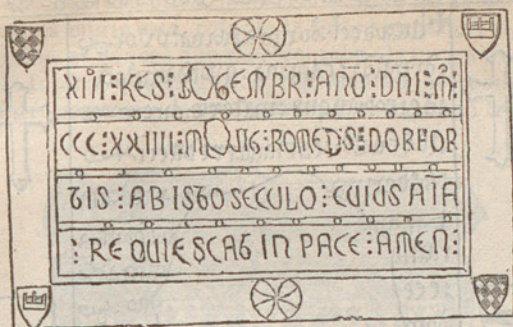 XIII : KES : SETEMBR : ANO : DNI : M :
CCC : XXIIII : ROMEDS : DORFOR
TIS : AB ISTO SECULO : CUIUS AĪA
: REQUIESCAT IN PACE : AMEN :